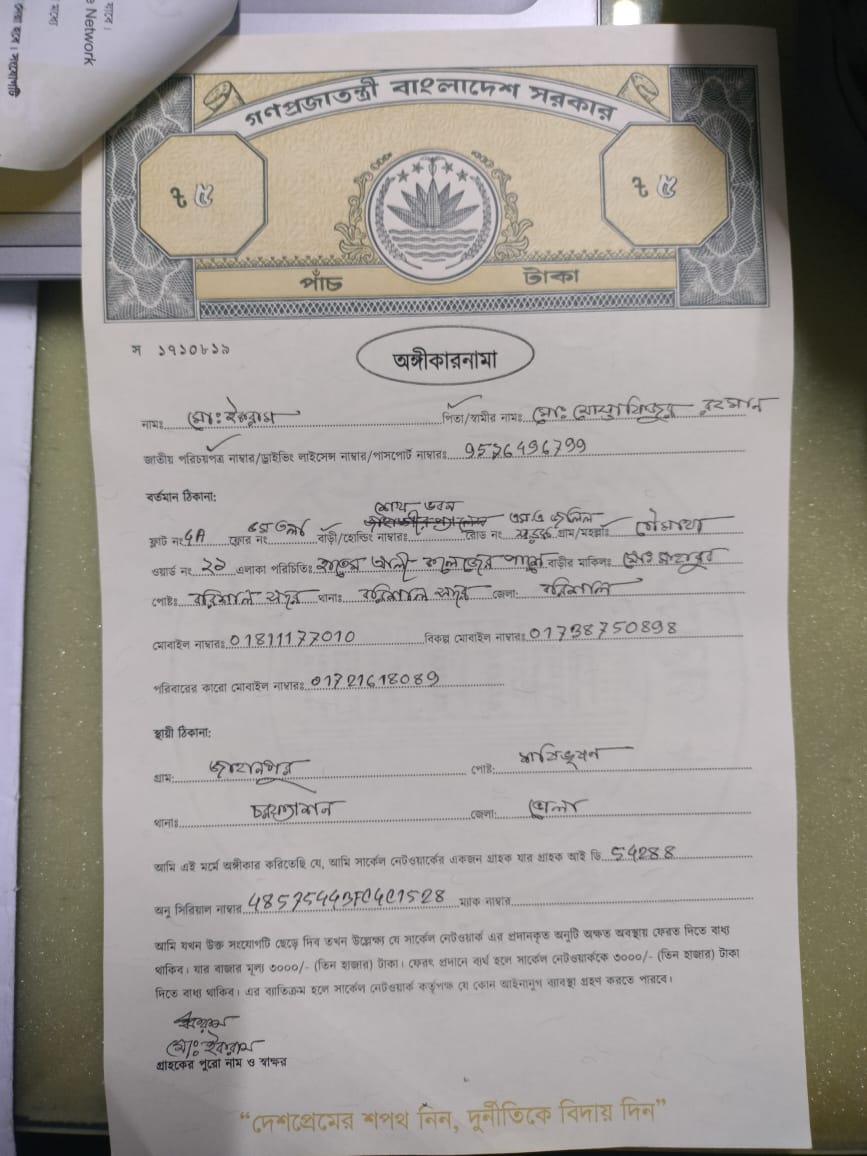 যাবে।
e Network
গণপ্রজাতন্ত্রী বাংলাদেশ সরকার
৳ ৫ ৳ ৫
পাঁচ টাকা
স ১৭১০৮১৯
অঙ্গীকারনামা
নামঃ মোঃ ইকরাম পিতা/স্বামীর নামঃ মোঃ মোস্তাফিজুর রহমান
জাতীয় পরিচয়পত্র নাম্বার/ড্রাইভিং লাইসেন্স নাম্বার/পাসপোর্ট নাম্বারঃ 9526496799
বর্তমান ঠিকানা:
শেখ ভবন
ফ্লাট নং 4A ফ্লোর নং ৫ম তলা বাড়ী/হোল্ডিং নাম্বারঃ রোড নং এম এ জলিল সড়ক গ্রাম/মহল্লাঃ গোঁসাই
ওয়ার্ড নং ২১ এলাকা পরিচিতিঃ হাতেম আলী কলেজের পাশে বাড়ীর মালিকঃ মোঃ
পোষ্টঃ বরিশাল সদর থানাঃ বরিশাল সদর জেলা: বরিশাল
মোবাইল নাম্বারঃ 01811177010 বিকল্প মোবাইল নাম্বারঃ 01738750898
পরিবারের কারো মোবাইল নাম্বারঃ 01721618089
স্থায়ী ঠিকানা:
গ্রাম: জাহানপুর পোষ্ট: শশিভূষন
থানাঃ চরফ্যাশন জেলা: ভোলা
আমি এই মর্মে অঙ্গীকার করিতেছি যে, আমি সার্কেল নেটওয়ার্কের একজন গ্রাহক যার গ্রাহক আই ডি 54288
অনু সিরিয়াল নাম্বার 48575443FC4C1528 ম্যাক নাম্বার
আমি যখন উক্ত সংযোগটি ছেড়ে দিব তখন উল্লেক্ষ্য যে সার্কেল নেটওয়ার্ক এর প্রদানকৃত অনুটি অক্ষত অবস্থায় ফেরত দিতে বাধ্য
থাকিব। যার বাজার মূল্য ৩০০০/- (তিন হাজার) টাকা। ফেরৎ প্রদানে ব্যর্থ হলে সার্কেল নেটওয়ার্ককে ৩০০০/- (তিন হাজার) টাকা
দিতে বাধ্য থাকিব। এর ব্যতিক্রম হলে সার্কেল নেটওয়ার্ক কর্তৃপক্ষ যে কোন আইনানুগ ব্যবস্থা গ্রহণ করতে পারবে।
ইকরাম
মোঃ ইকরাম
গ্রাহকের পুরো নাম ও স্বাক্ষর
“দেশপ্রেমের শপথ নিন, দুর্নীতিকে বিদায় দিন”